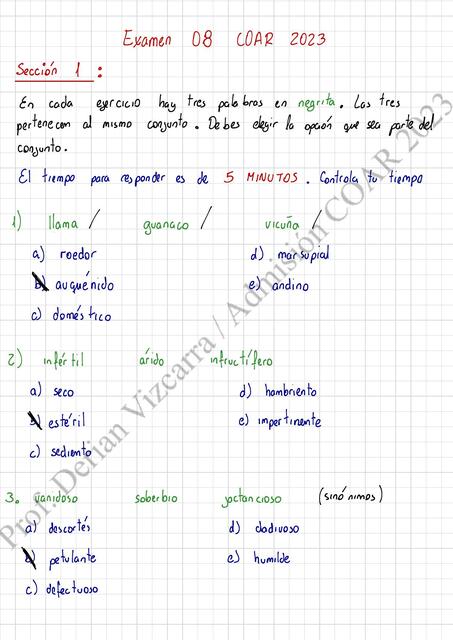 Examen 08 COAR 2023
Sección 1 :
En cada ejercicio hay tres palabras en negrita. Las tres
pertenecen al mismo conjunto. Debes elegir la opción que sea parte del
conjunto.
El tiempo para responder es de 5 MINUTOS. Controla tu tiempo
1) llama / guanaco / vicuña /
a) roedor d) marsupial
b) auquénido e) andino
c) doméstico
2) infértil árido infructífero
a) seco d) hambriento
b) estéril e) impertinente
c) sediento
3. vanidoso soberbio jactancioso (sinónimos)
a) descortés d) dadivoso
b) petulante e) humilde
c) defectuoso
Prof. Defian Vizcarra / Admisión COAR 2023